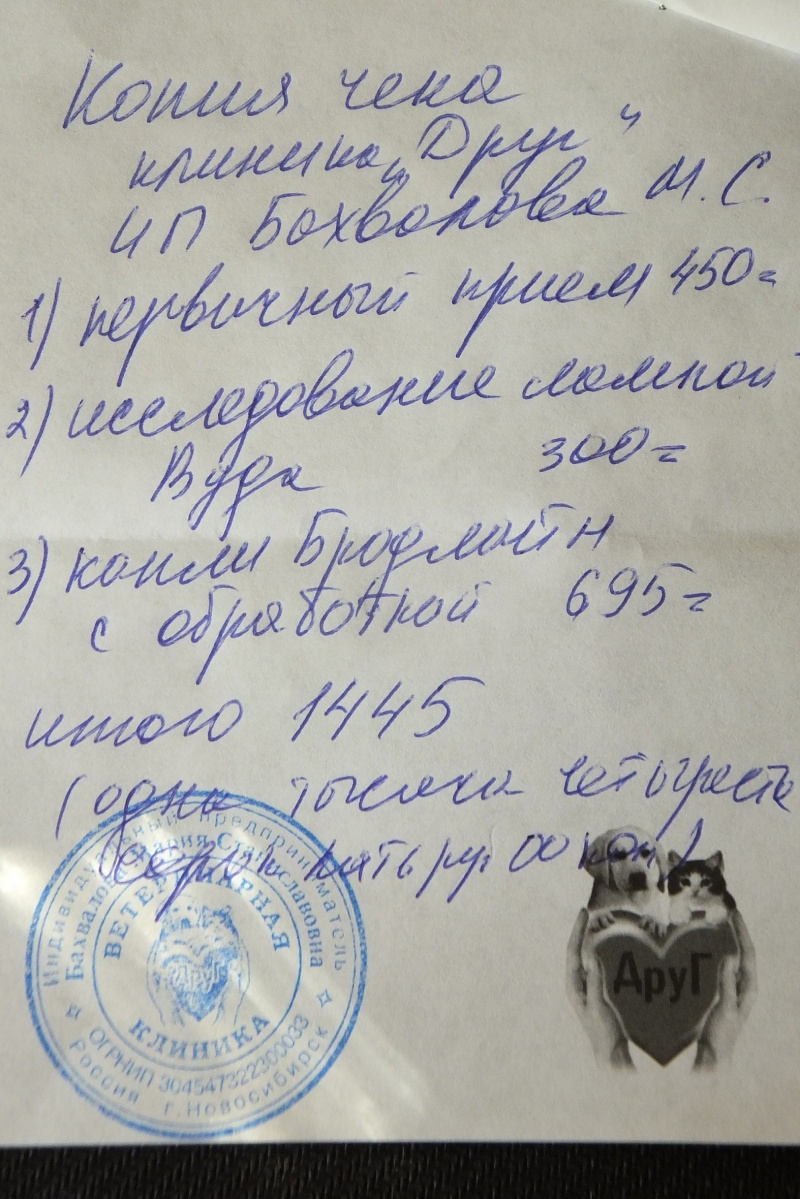 Копия чека
клиника „Друг“
ИП Бахвалова М.С.
1) первичный прием 450=
2) исследование лампой
Вуда 300=
3) капли Бродлайн
с обработкой 695=
итого 1445
(одна тысяча четыреста
сорок пять ру. 00 коп)
Индивидуальный предприниматель
Бахвалова Мария Станиславовна
ВЕТЕРИНАРНАЯ
ДруГ
КЛИНИКА
ОГРНИП 304547322300033
Россия г.Новосибирск
ДруГ